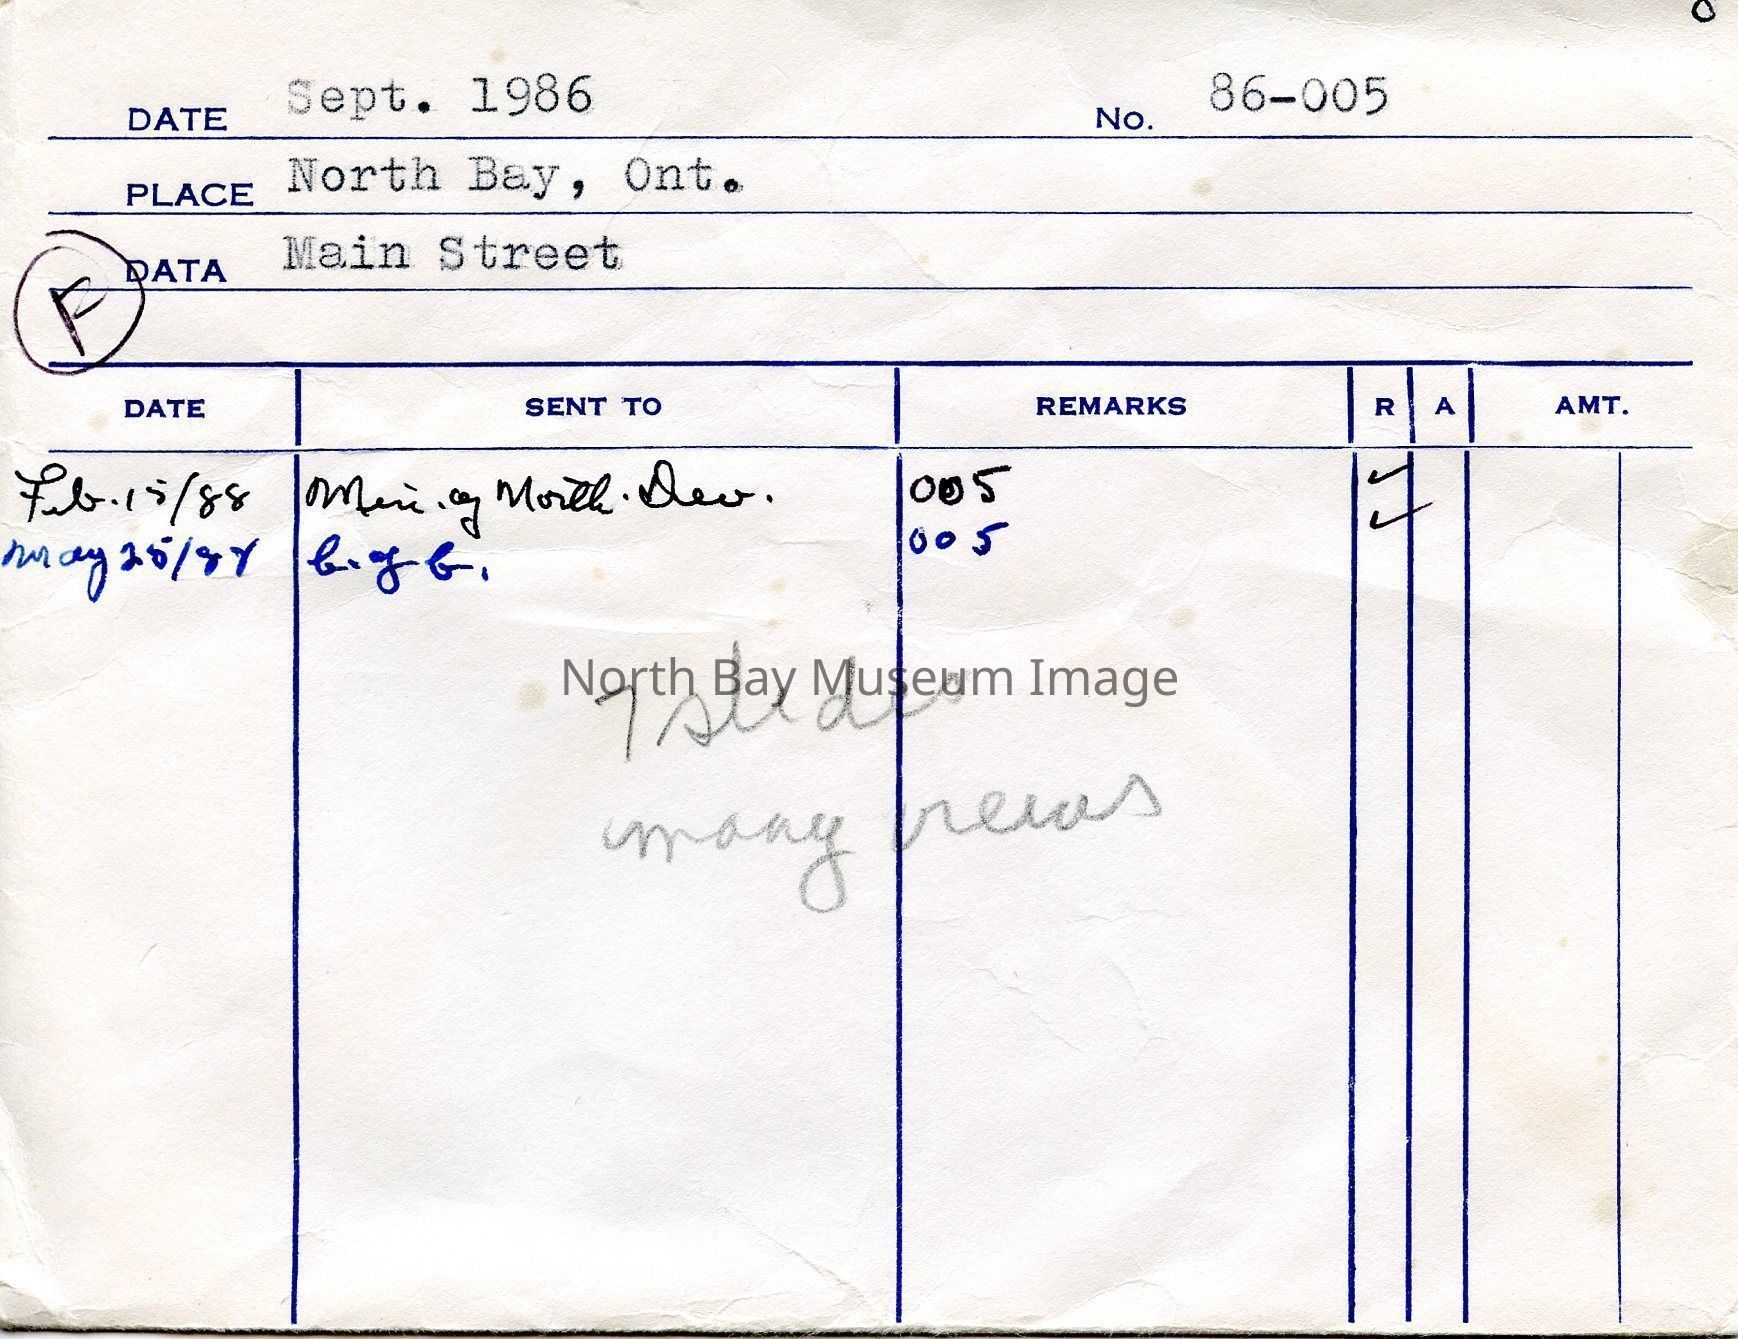 DATE Sept. 1986 No. 86-005
PLACE North Bay, Ont.
DATA Main Street
F
DATE SENT TO REMARKS R A AMT.
Feb. 15/88 Min. of North. Dev. 005 ✓
May 25/88 C. of C. 005 ✓
North Bay Museum Image
7 slides
many views